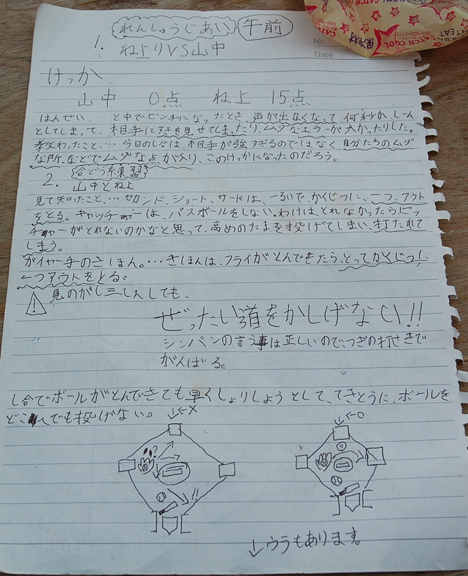 れんしゅうじあい 午前
1. ね上りVS山中
けっか
山中 0点 ね上 15点
はんせい... と中でピンチになったとき、声が出なくなって、何秒か、しーん
としてしまって、相手にすきを見せてしまったり、ムダなエラーが大かったりした。
教わったこと... 今日のしあいは、相手が強すぎるのではなく、自分たちのムダ
な所、などでムダな点が入り、このけっかになったのだろう。
2. 合どう系練習
山中とねよ
見て知ったこと... セカンド、ショート、サードは、一るいで、かくじつに、一つ、アウト
をとる。キャッチャーは、パスボールをしない。わけは、とれなかったらピッ
チャーがとれないのかなと思って、高めのたまを投げてしまい、打たれて
しまう。
ガイヤ一手のきほん。... きほんは、フライがとんできたら、とってかくじつに
一つアウトをとる。
! 見のがし三しんしても、
ぜったい首をかしげない!!
シンパンの言う事は正しいので、つぎの打せきで
がんばる。
し合でボールがとんできても、早くしょりしようとして、てきとうに、ボールを
どこへでも投げない。
↓←X
↓←O
↓ウラもあります。
No.
Date
CATCH COOL
保冷材
EAT